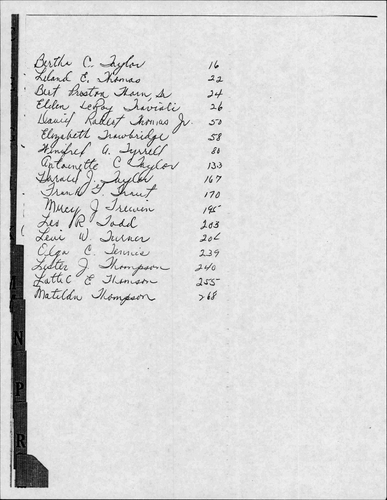 Bertha C. Taylor 16
Leland E. Thomas 22
Bert Preston Thorn, Sr 24
Elden LeRoy Traviati 26
David Robert Thomas Jr. 50
Elizabeth Trowbridge 58
Winifred A. Tyrrell 80
Antoinette C Taylor 133
Horace J. Taylor 167
Frank E. Traut 170
Mercy J Trewin 195
Leo R. Todd 203
Levi W. Turner 206
Elga C. Tennis 239
Lester J. Thompson 240
Lottie E Thomson 255
Matilda Thompson 268
N
P
R